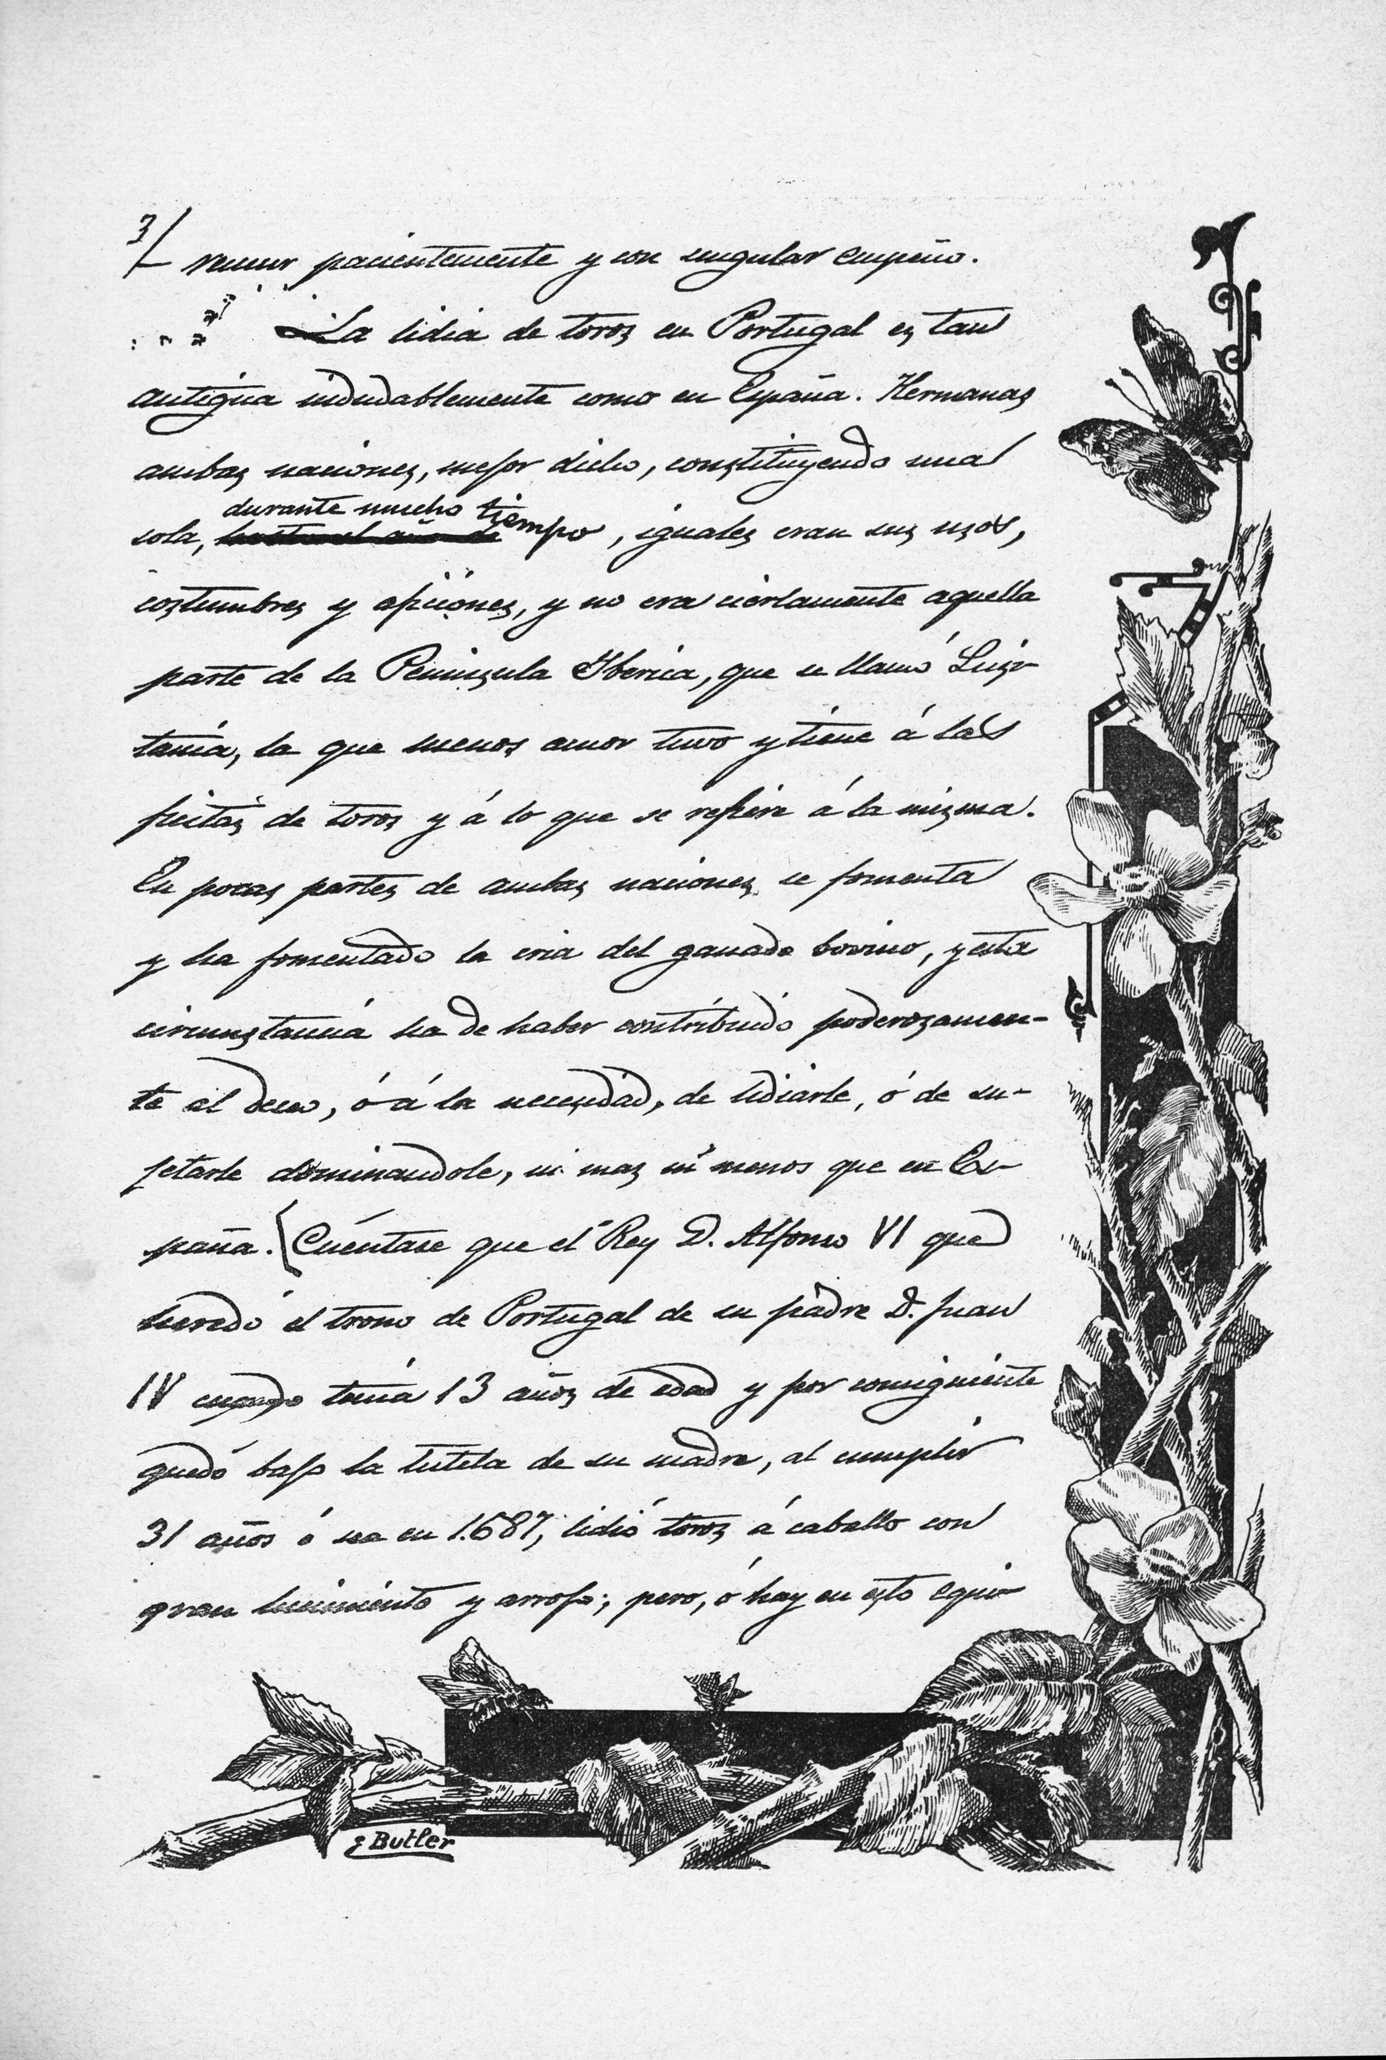 3/ reunir pacientemente y con singular empeño.
La lidia de toros en Portugal es tan
antigua indudablemente como en España. Hermanas
ambas naciones, mejor dicho, constituyendo una
durante mucho tiempo
sola, hasta el año de, iguales eran sus usos,
costumbres y aficiones, y no era ciertamente aquella
parte de la Peninsula Iberica, que se llamó Lusi-
tania, la que menos amor tuvo y tiene á las
fiestas de toros y á lo que se refiere á la misma.
En pocas partes de ambas naciones se fomenta
y ha fomentado la cria del ganado bovino, y esta
circunstancia ha de haber contribuido poderosamen-
te al deseo, ó á la necesidad, de lidiarle, ó de su-
jetarle dominandole, ni mas ni menos que en Es-
paña. (Cuéntase que el Rey D. Alfonso VI que
heredó el trono de Portugal de su padre D. Juan
IV cuando tenia 13 años de edad y por consiguiente
quedó bajo la tutela de su madre, al cumplir
31 años ó sea en 1.687, lidió toros á caballo con
gran lucimiento y arrojo; pero, ó hay en esto equi-
E Butler